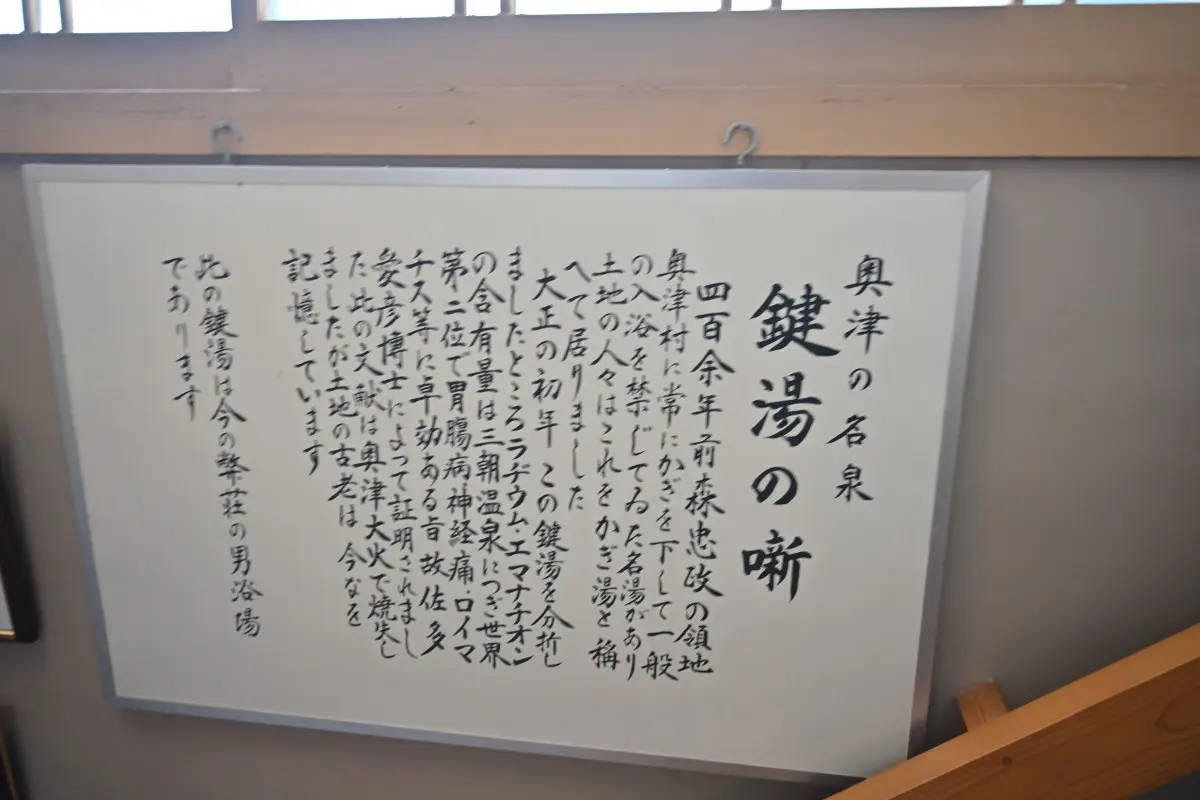 奥津の名泉
鍵湯の噺
四百余年前森忠政の領地
奥津村に常にかぎを下して一般
の入浴を禁じてゐた名湯があり
土地の人々はこれをかぎ湯と稱
へて居りました
大正の初年この鍵湯を分折し
ましたところラヂウムエマナチオン
の含有量は三朝温泉につぎ世界
第二位で胃腸病神経痛ロイマ
チス等に卓効ある旨故佐多
愛彦博士によって証明されまし
た此の文献は奥津大火で焼失し
ましたが土地の古老は今なを
記憶しています
此の鍵湯は今の弊荘の男浴場
であります